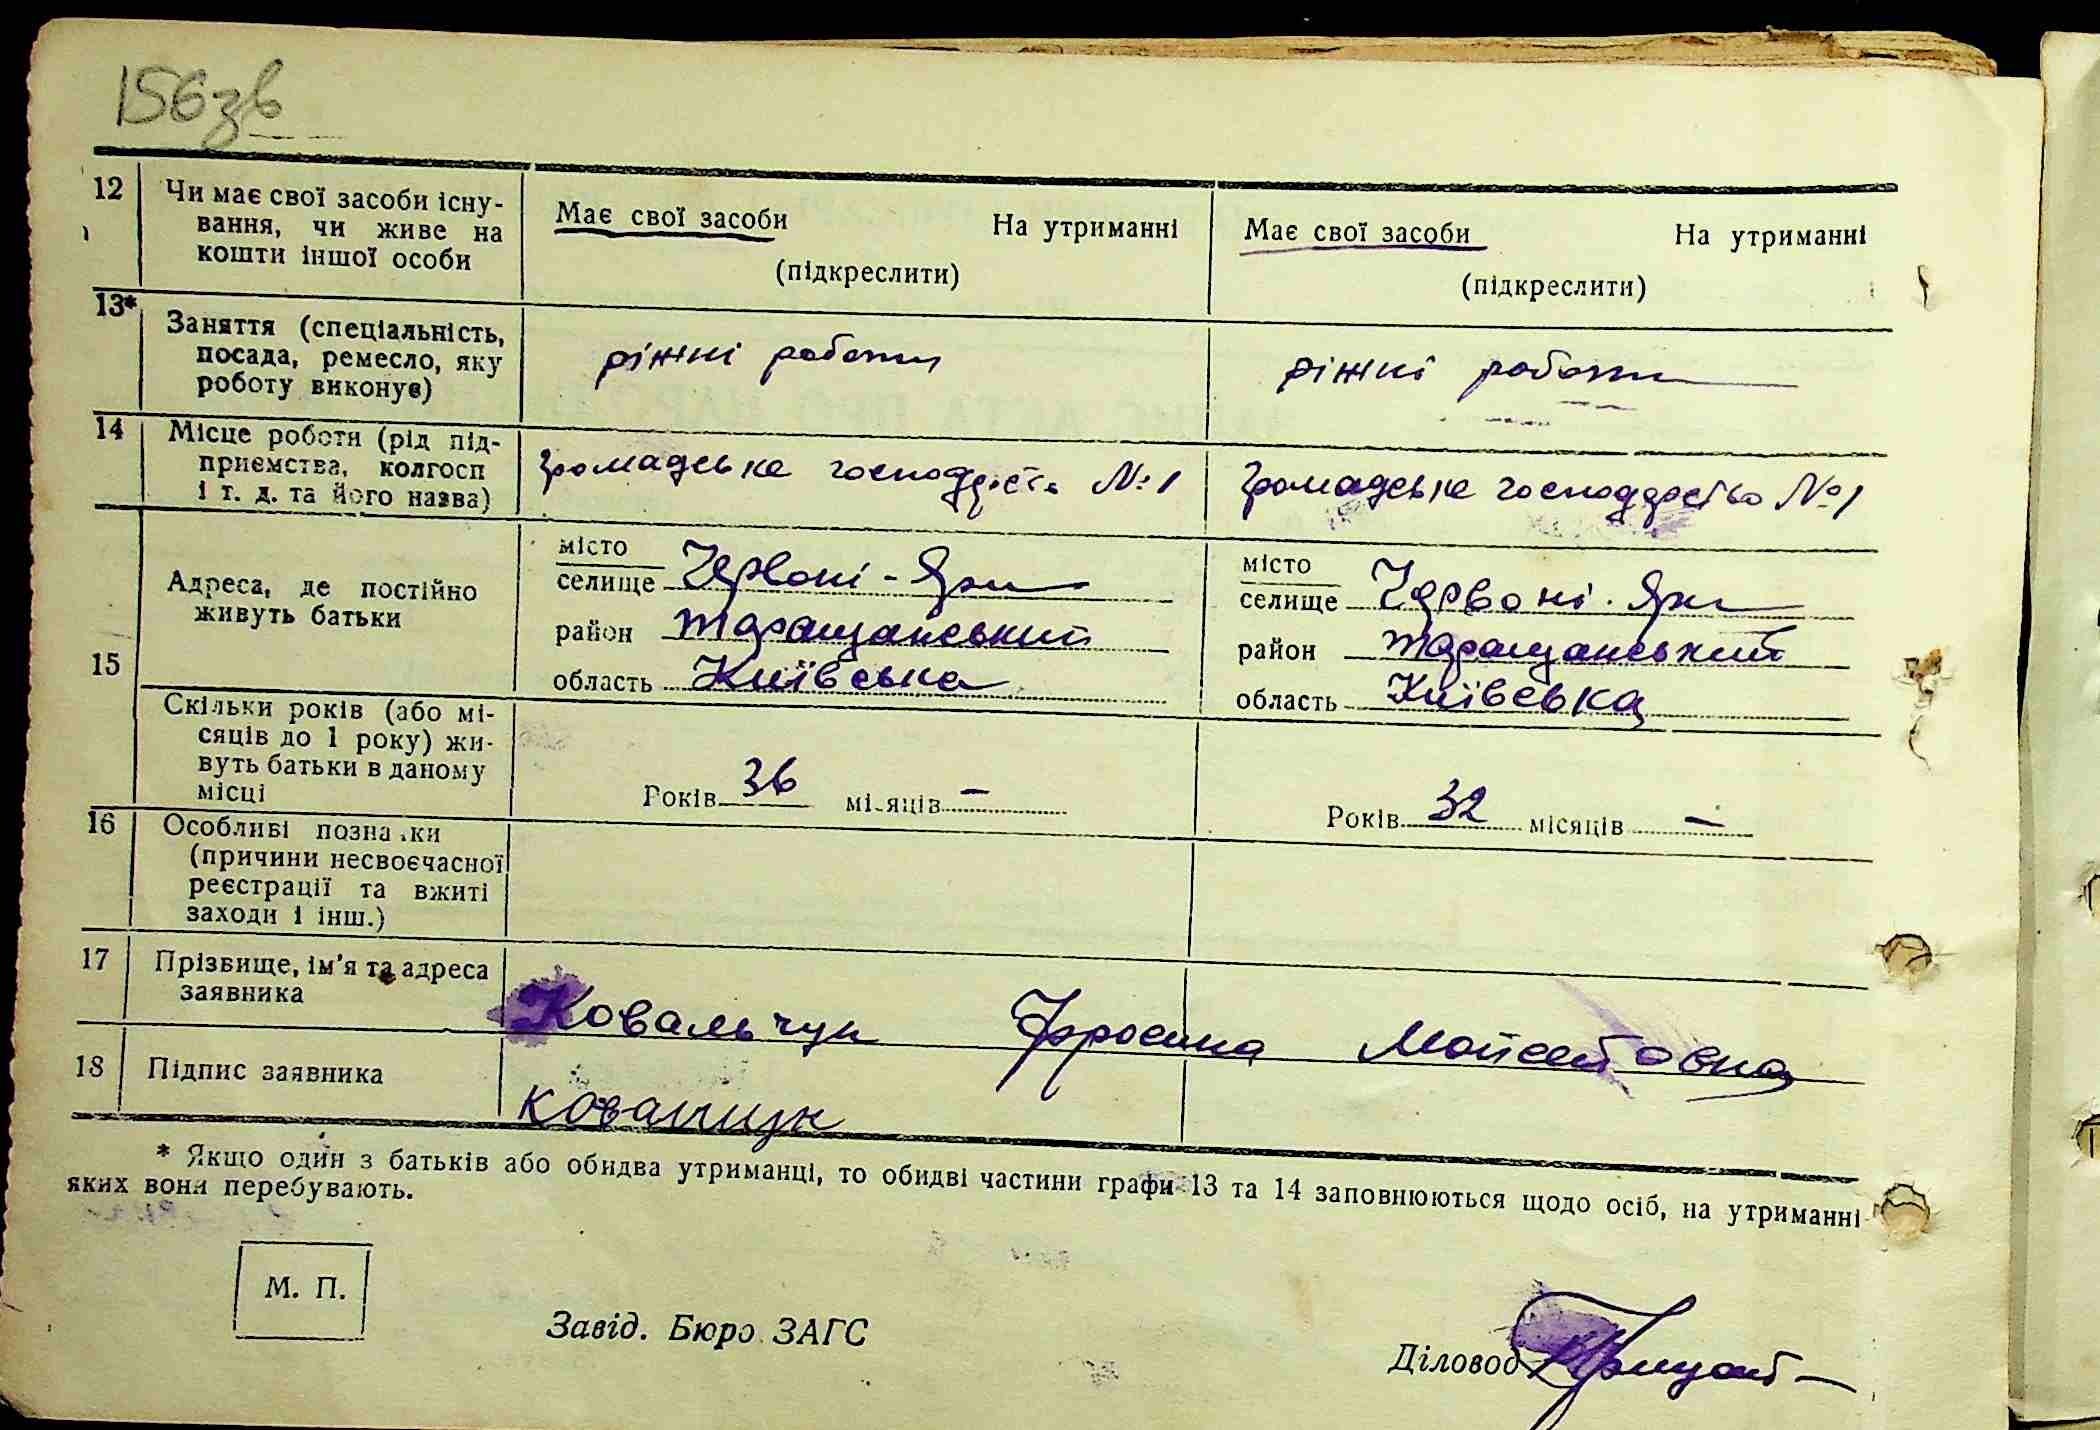 156зв
12 Чи має свої засоби існу-
вання, чи живе на
кошти іншої особи
Має свої засоби На утриманні
(підкреслити)
Має свої засоби На утриманні
(підкреслити)
13* Заняття (спеціальність,
посада, ремесло, яку
роботу виконує)
ріжні роботи
ріжні роботи
14 Місце роботи (рід під-
приємства, колгосп
і т. д. та його назва)
Громадське господарство №1
Громадське господарство №1
15 Адреса, де постійно
живуть батьки
місто
селище Червоні-Яри
район Таращанський
область Київська
місто
селище Червоні-Яри
район Таращанський
область Київська
Скільки років (або мі-
сяців до 1 року) жи-
вуть батьки в даному
місці
Років 36 місяців —
Років 32 місяців —
16 Особливі познаки
(причини несвоєчасної
реєстрації та вжиті
заходи і інш.)
17 Прізвище, ім'я та адреса
заявника
Ковальчук Фросина Мойсеівовна
18 Підпис заявника
Ковальчук
* Якщо один з батьків або обидва утриманці, то обидві частини графи 13 та 14 заповнюються щодо осіб, на утриманні
яких вони перебувають.
М. П.
Завід. Бюро ЗАГС
Діловод